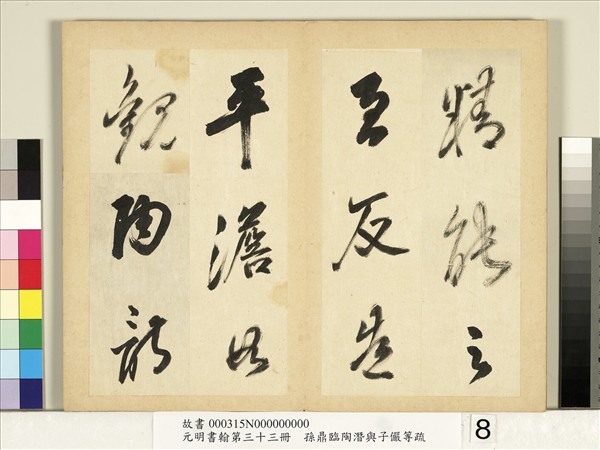 精能之
至反造
平澹如
觀陶詩
故書 000315N000000000
元明書翰第三十三冊 孫鼎臨陶潛與子儼等疏
8